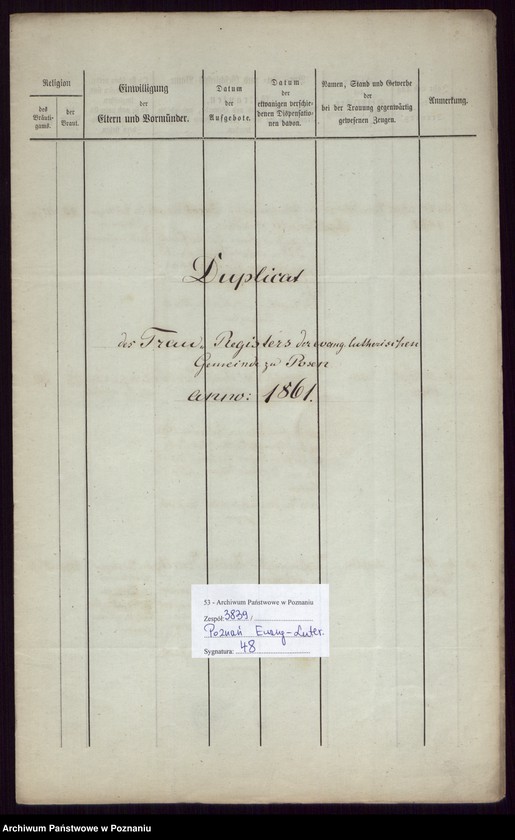 Religion
des
Bräuti-
gams.
der
Braut.
Einwilligung
der
Eltern und Vormünder.
Datum
der
Aufgebote.
Datum
der
etwanigen verschie-
denen Dispensatio-
nen davon.
Namen, Stand und Gewerbe
der
bei der Trauung gegenwärtig
gewesenen Zeugen.
Anmerkung.
Duplicat
des Trau-Registers der evang. lutherischen
Gemeinde zu Posen
anno: 1861.
53 - Archiwum Państwowe w Poznaniu
Zespół: 3839 /
Poznań Evang-Luter.
Sygnatura: 48
Archiwum Państwowe w Poznaniu